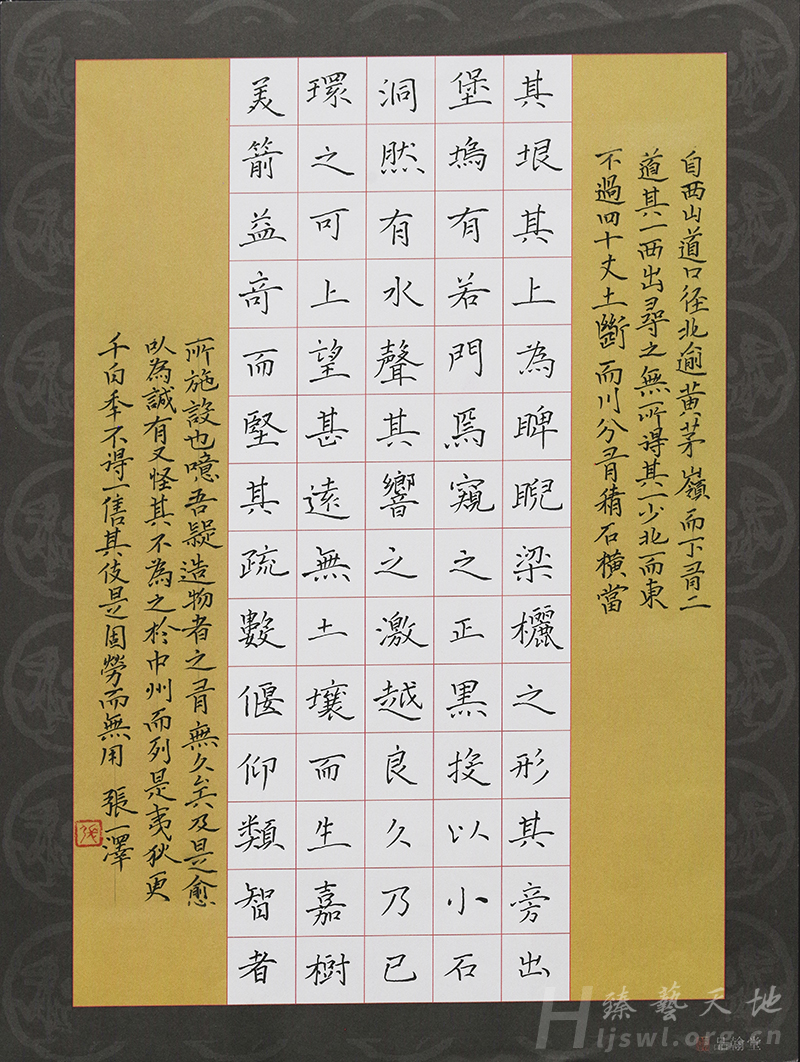 自西山道口径北逾黄茅嶺而下有二
道其一西出尋之無所得其一少北而東
不過四十丈土斷而川分有積石橫當
其垠其上為睥睨梁欐之形其旁出
堡塢有若門焉窺之正黑投以小石
洞然有水聲其響之激越良久乃已
環之可上望甚遠無土壤而生嘉樹
美箭益奇而堅其疏數偃仰類智者
所施設也噫吾疑造物者之有無久矣及是愈
以為誠有又怪其不為之於中州而列是夷狄更
千百秊不得一售其伎是固勞而無用 張一澤
臻藝天地
Hljswl.org.cn
品翰堂